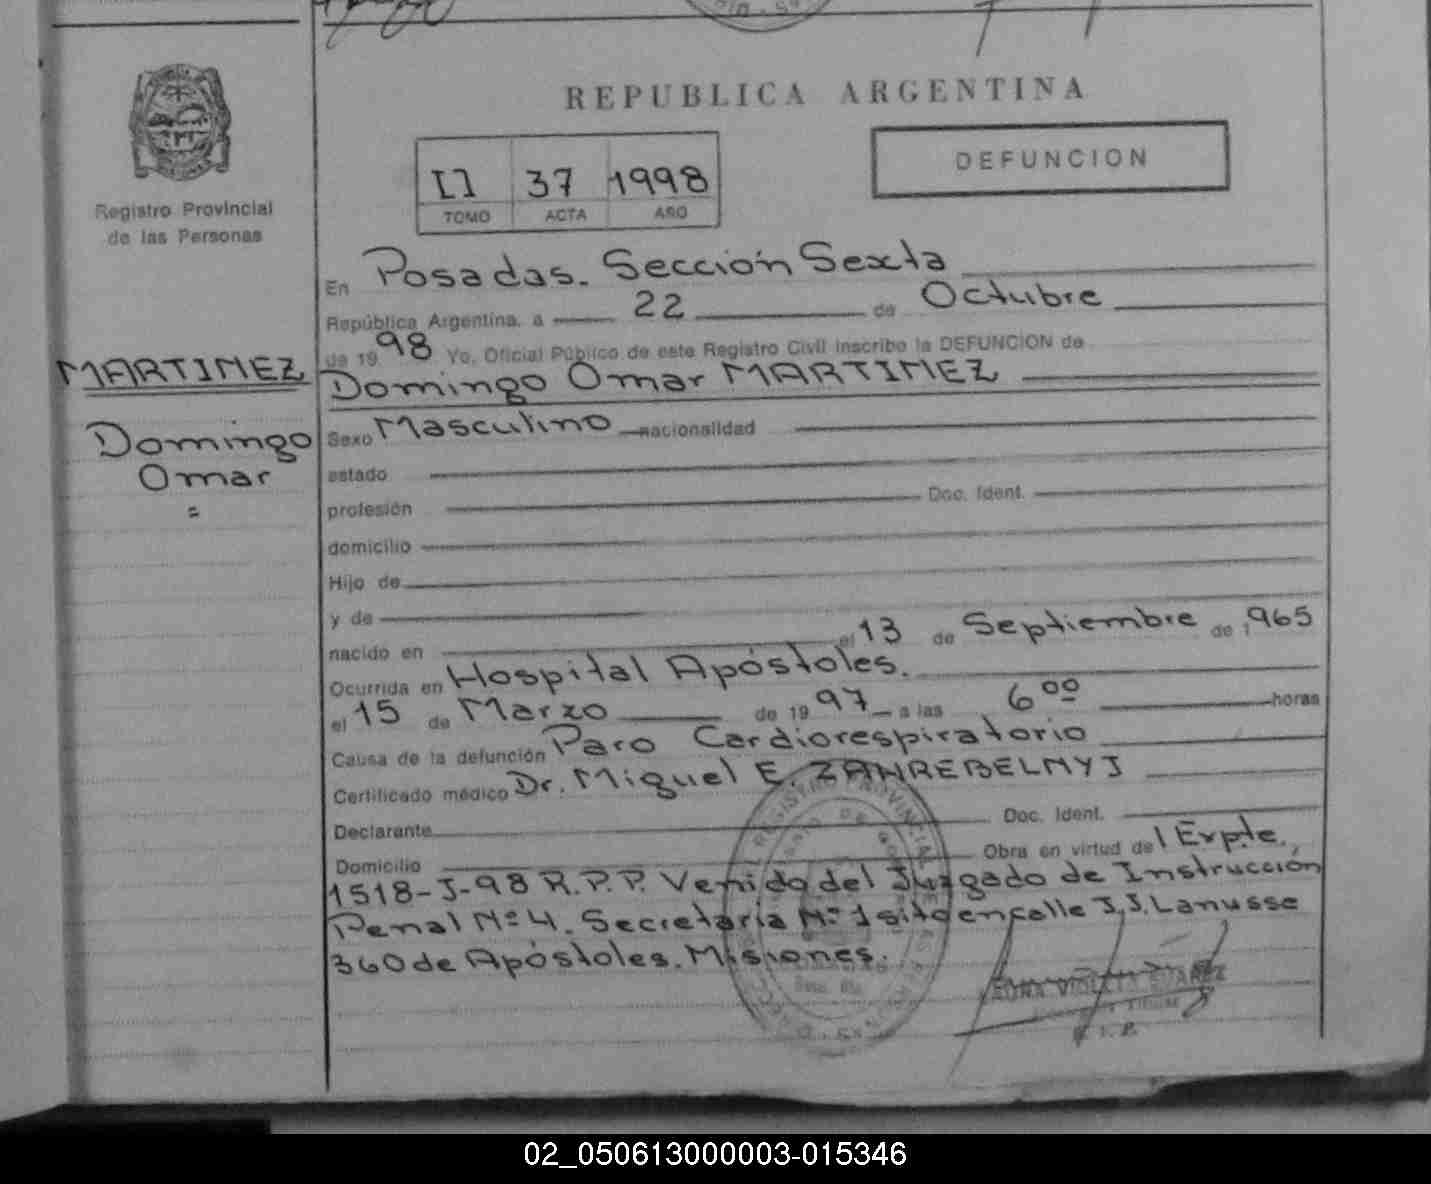 REPUBLICA ARGENTINA
DEFUNCION
37 1998
TOMO ACTA AÑO
Registro Provincial
de las Personas
En Posadas. Sección Sexta
República Argentina, a 22 de Octubre
de 1998 Yo, Oficial Público de este Registro Civil inscribo la DEFUNCION de
MARTINEZ
Domingo
Omar
Domingo Omar MARTINEZ
Sexo Masculino nacionalidad
estado
profesión Doc. Ident.
domicilio
Hijo de
y de
nacido en el 13 de Septiembre de 1965
Ocurrida en Hospital Apóstoles.
el 15 de Marzo de 1997 a las 6 00 horas
Causa de la defunción Paro Cardiorespiratorio
Certificado médico Dr. Miguel E.
Declarante Doc. Ident.
Domicilio Obra en virtud del Expte.,
1518-J-98 R.P.P. Venido del Juzgado de Instrucción
Penal Nº 4. Secretaria Nº 1 sito en calle J.J. Lanusse
360 de Apóstoles. Misiones.
02_050613000003-015346